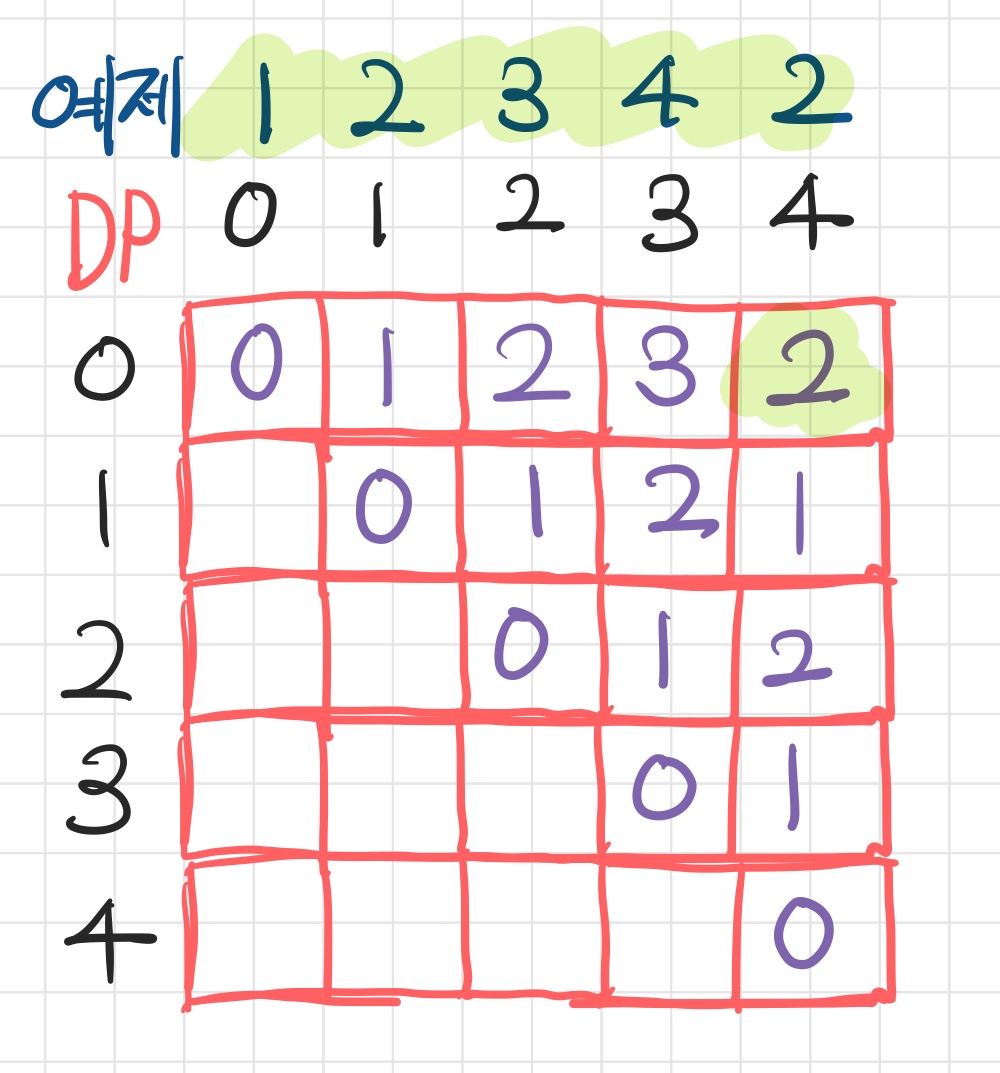 예제 1 2 3 4 2
DP 0 1 2 3 4
0 0 1 2 3 2
1 0 1 2 1
2 0 1 2
3 0 1
4 0